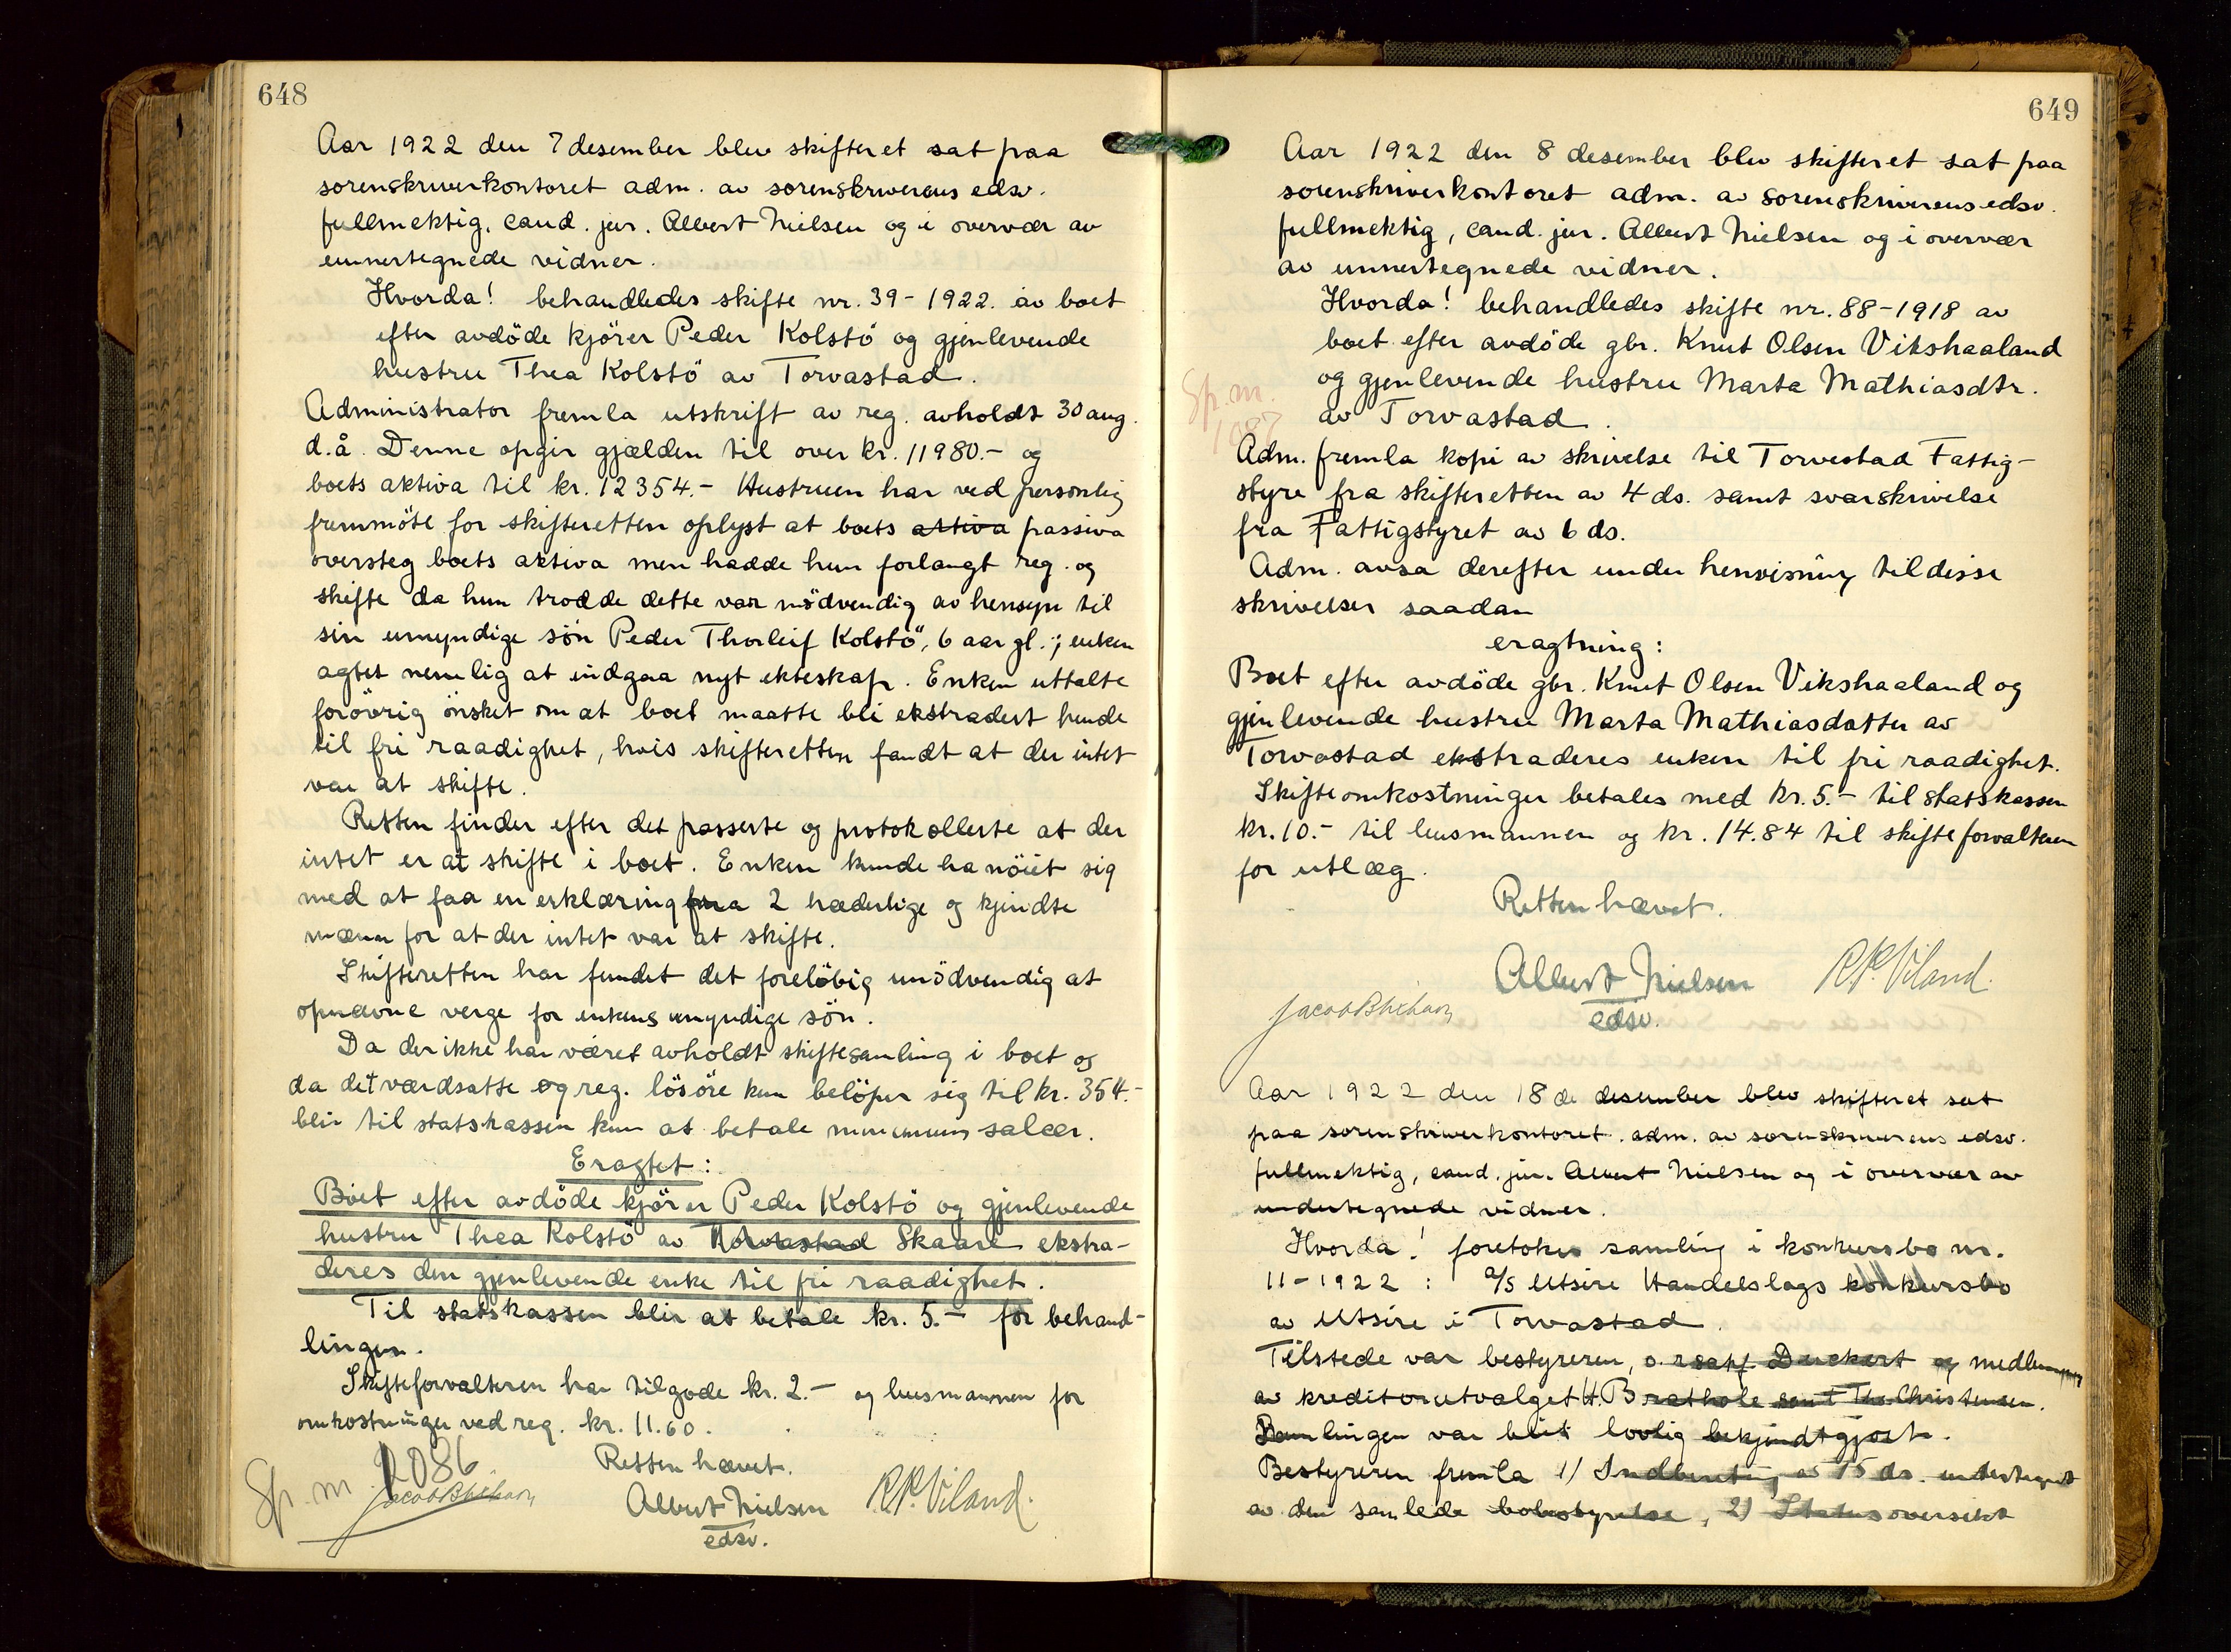 648
Aar 1922 den 7 desember blev skifteret sat paa
sorenskriverkontoret adm. av sorenskriverens edsv.
fullmektig, cand. jur. Albert Nielsen og i overvær av
unnertegnede vidner.
Hvorda! behandledes skifte nr. 39-1922. av boet
efter avdöde kjörer Peder Kolstö og gjenlevende
hustru Thea Kolstö av Torvastad.
Administrator fremla utskrift av reg. avholdt 30 aug.
d.å. Denne opgir gjælden til over kr. 11980.- og
boets aktiva til kr. 12354.- Hustruen har ved personlig
fremmöte for skifteretten oplyst at boets aktiva passiva
oversteg boets aktiva men hadde hun forlangt reg. og
skifte da hun trodde dette var nödvendig av hensyn til
sin umyndige sön Peder Thorleif Kolstö, 6 aar gl.; enken
agtet nemlig at indgaa nyt ekteskap. Enken uttalte
forövrig önsket om at boet maatte bli ekstradert hende
til fri raadighet, hvis skifteretten fandt at der intet
var at skifte.
Retten finder efter det passerte og protokollerte at der
intet er at skifte i boet. Enken kunde ha nöiet sig
med at faa en erklæring fra 2 hæderlige og kjendte
mænn for at der intet var at skifte.
Skifteretten har fundet det forelöbig unödvendig at
opnævne verge for enkens umyndige sön.
Da der ikke har været avholdt skiftesamling i boet og
da det værdsatte og reg. lösöre kun belöper sig til kr. 354.-
blir til statskassen kun at betale minimums salær.
Eragtet:
Boet efter avdöde kjörer Peder Kolstö og gjenlevende
hustru Thea Kolstö av Torvastad Skaare ekstra-
deres den gjenlevende enke til fri raadighet.
Til statskassen blir at betale kr. 5.- for behand-
lingen.
Skifteforvalteren har tilgode kr. 2.- og lensmannen for
omkostninger ved reg. kr. 11.60.
Retten hævet.
Sp. m. 1086
Albert Nielsen R.P. Viland.
edsv.
649
Aar 1922 den 8 desember blev skifteret sat paa
sorenskriverkontoret adm. av sorenskriverens edsv.
fullmektig, cand. jur. Albert Nielsen og i overvær
av unnertegnede vidner.
Hvorda! behandledes skifte nr. 88-1918 av
boet efter avdöde gbr. Knut Olsen Vikshaaland
og gjenlevende hustru Marta Mathiasdtr.
av Torvastad.
Sp. m.
1087
Adm. fremla kopi av skrivelse til Torvestad Fattig-
styre fra skifteretten av 4 ds. samt svarskrivelse
fra Fattigstyret av 6 ds.
Adm. avsa derefter under henvisning til disse
skrivelser saadan
eragtning:
Boet efter avdöde gbr. Knut Olsen Vikshaaland og
gjenlevende hustru Marta Mathiasdatter av
Torvastad ekstraderes enken til fri raadighet.
Skifteomkostninger betales med kr. 5.- til statskassen
kr. 10.- til lensmannen og kr. 14.84 til skifteforvalteren
for utlæg.
Retten hævet.
Albert Nielsen R.P. Viland.
edsv.
Aar 1922 den 18 de desember blev skifteret sat
paa sorenskriverkontoret. adm. av sorenskriverens edsv.
fullmektig, cand. jur. Albert Nielsen og i overvær av
undertegnede vidner.
Hvorda! foretokes samling i konkursbo nr.
11-1922: a/s Utsire Handelslags konkursbo
av Utsire i Torvastad.
Tilstede var bestyreren, o.r.sakf. Duckert og medlemmer
av kreditorutvalget H. Brathole samt Th. Christensen.
Samlingen var blit lovlig bekjendtgjort.
Bestyreren fremla 1) Indberetning av 15 ds. undertegnet
av den samlede bobestyrelse, 2) Statusoversikt